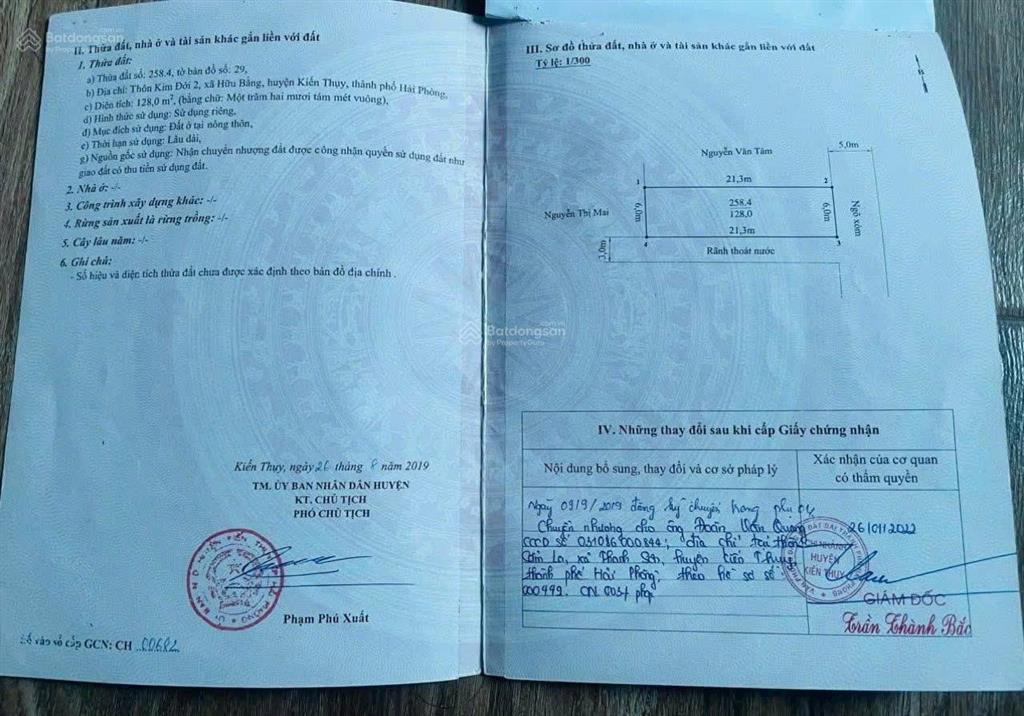 Batdongsan
by PropertyGuru
II. Thửa đất, nhà ở và tài sản khác gắn liền với đất
1. Thửa đất:
a) Thửa đất số: 258.4, tờ bản đồ số: 29,
b) Địa chỉ: Thôn Kim Đới 2, xã Hữu Bằng, huyện Kiến Thụy, thành phố Hải Phòng,
c) Diện tích: 128,0 m², (bằng chữ: Một trăm hai mươi tám mét vuông),
d) Hình thức sử dụng: Sử dụng riêng,
đ) Mục đích sử dụng: Đất ở tại nông thôn,
e) Thời hạn sử dụng: Lâu dài,
g) Nguồn gốc sử dụng: Nhận chuyển nhượng đất được công nhận quyền sử dụng đất như
giao đất có thu tiền sử dụng đất.
2. Nhà ở: -/-
3. Công trình xây dựng khác: -/-
4. Rừng sản xuất là rừng trồng: -/-
5. Cây lâu năm: -/-
6. Ghi chú:
- Số hiệu và diện tích thửa đất chưa được xác định theo bản đồ địa chính .
Kiến Thụy, ngày 26 tháng 8 năm 2019
TM. ỦY BAN NHÂN DÂN HUYỆN
KT. CHỦ TỊCH
PHÓ CHỦ TỊCH
Phạm Phú Xuất
Số vào sổ cấp GCN: CH 00682
III. Sơ đồ thửa đất, nhà ở và tài sản khác gắn liền với đất
Tỷ lệ: 1/300
B
Nguyễn Văn Tâm
5,0m
1
21,3m
2
Nguyễn Thị Mai
6,0m
258.4
128,0
6,0m
Ngõ xóm
21,3m
4
3
3,0m
Rãnh thoát nước
Batdongsan
.com.vn
by PropertyGuru
IV. Những thay đổi sau khi cấp Giấy chứng nhận
Nội dung bổ sung, thay đổi và cơ sở pháp lý
Xác nhận của cơ quan
có thẩm quyền
Ngày 09/9/2019 đăng ký chuyển trong phụ
Chuyển nhượng cho ông Đoàn Văn Quang
CCCD số địa chỉ tại thôn
xã Thanh Sơn, huyện Kiến Thụy
thành phố Hải Phòng; theo hồ sơ số
26/01/2022
CHI NHÁNH
HUYỆN
KIẾN THỤY
GIÁM ĐỐC
Trần Thành Bắc